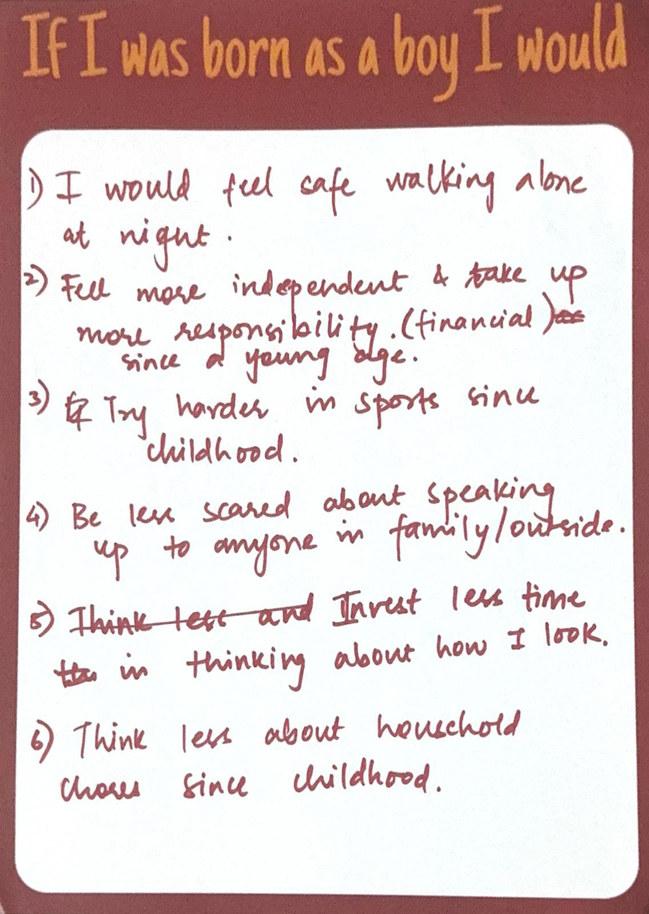 If I was born as a boy I would
1) I would feel safe walking alone
at night.
2) Feel more independent & take up
more responsibility. (financial)
since a young age.
3) Try harder in sports since
childhood.
4) Be less scared about speaking
up to anyone in family/outside.
5) Think less and Invest less time
in thinking about how I look.
6) Think less about household
chores since childhood.